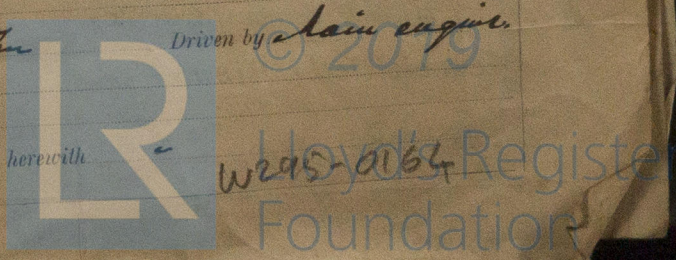 Driven by Main engine.
© 2019
LR
herewith
W295-0164
Lloyd's Register
Foundation